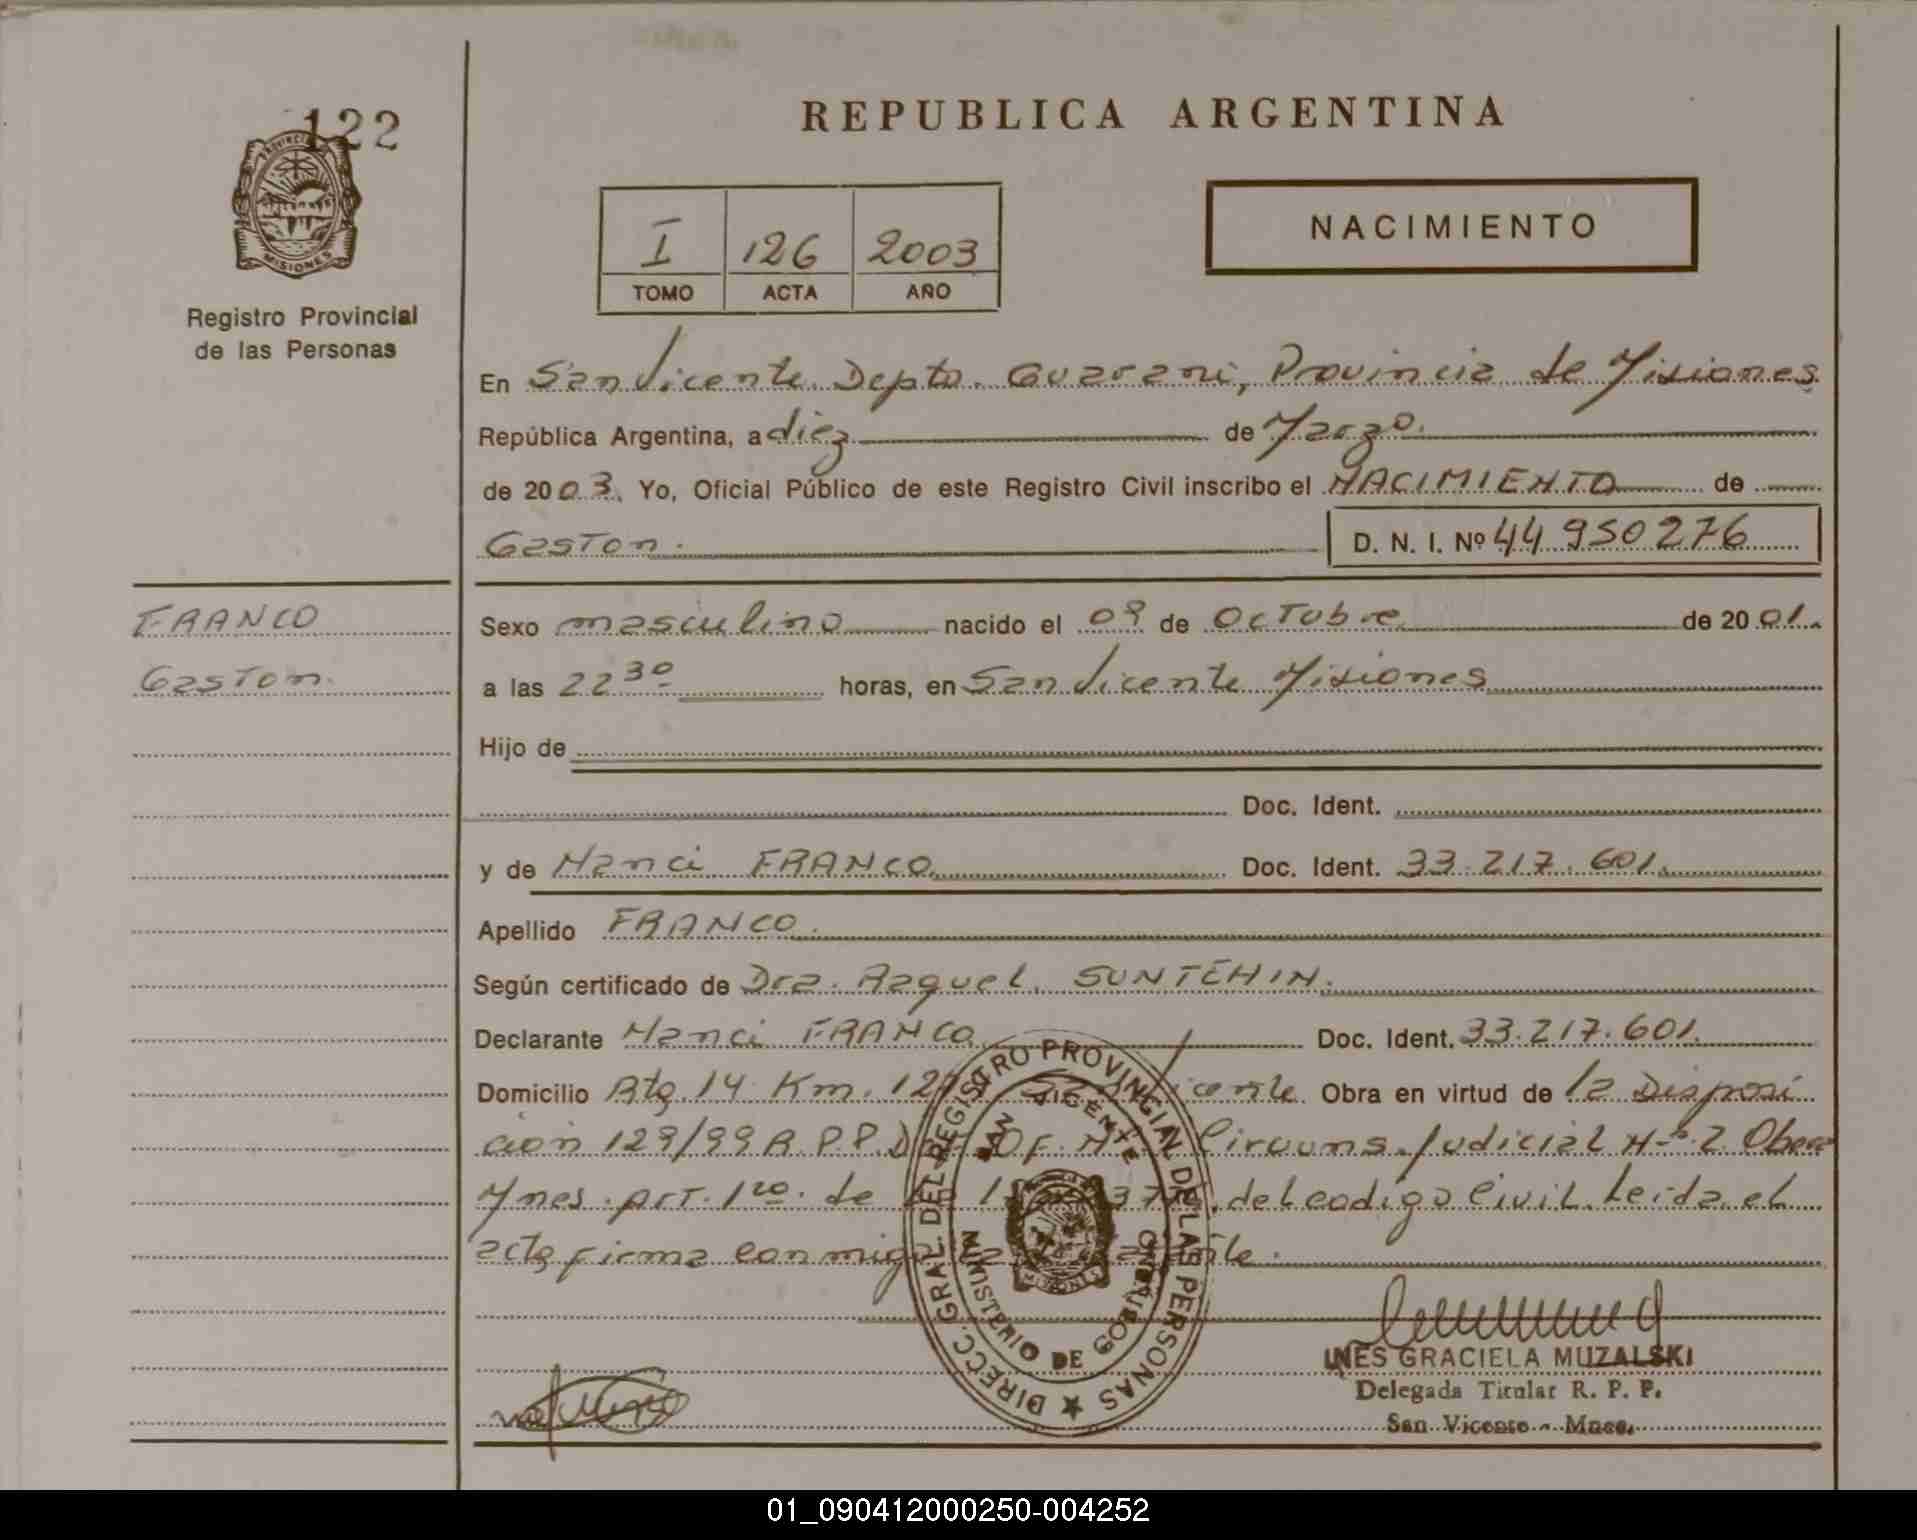 122
REPUBLICA ARGENTINA
PROVINCIA
MISIONES
Registro Provincial
de las Personas
I 126 2003
TOMO ACTA AÑO
NACIMIENTO
En San Vicente Depto. Guarani, Provincia de Misiones
República Argentina, a diez de Marzo.
de 2003. Yo, Oficial Público de este Registro Civil inscribo el NACIMIENTO de
Gaston. D. N. I. Nº 44 950276
FRANCO
Gaston.
Sexo masculino nacido el 09 de Octubre de 2001.
a las 22 30 horas, en San Vicente Misiones
Hijo de
Doc. Ident.
y de Nanci FRANCO Doc. Ident. 33.217.601.
Apellido FRANCO.
Según certificado de Dra. Raquel SUNTEHIN.
Declarante Nanci FRANCO Doc. Ident. 33.217.601.
Domicilio Rta. 14 Km. San Vicente Obra en virtud de la Disposi
cion 129/99 R.P.P. Circuns. Judicial Nº 2 Obera
Mnes. Art. 1ro. de del Codigo Civil. Leida el
acta firma conmigo
DIRECC. GRAL. DEL REGISTRO PROVINCIAL DE LAS PERSONAS
SAN VICENTE
MINISTERIO DE GOBIERNO
MISIONES
INES GRACIELA MUZALSKI
Delegada Titular R. P. P.
San Vicente - Mnes.
01_090412000250-004252